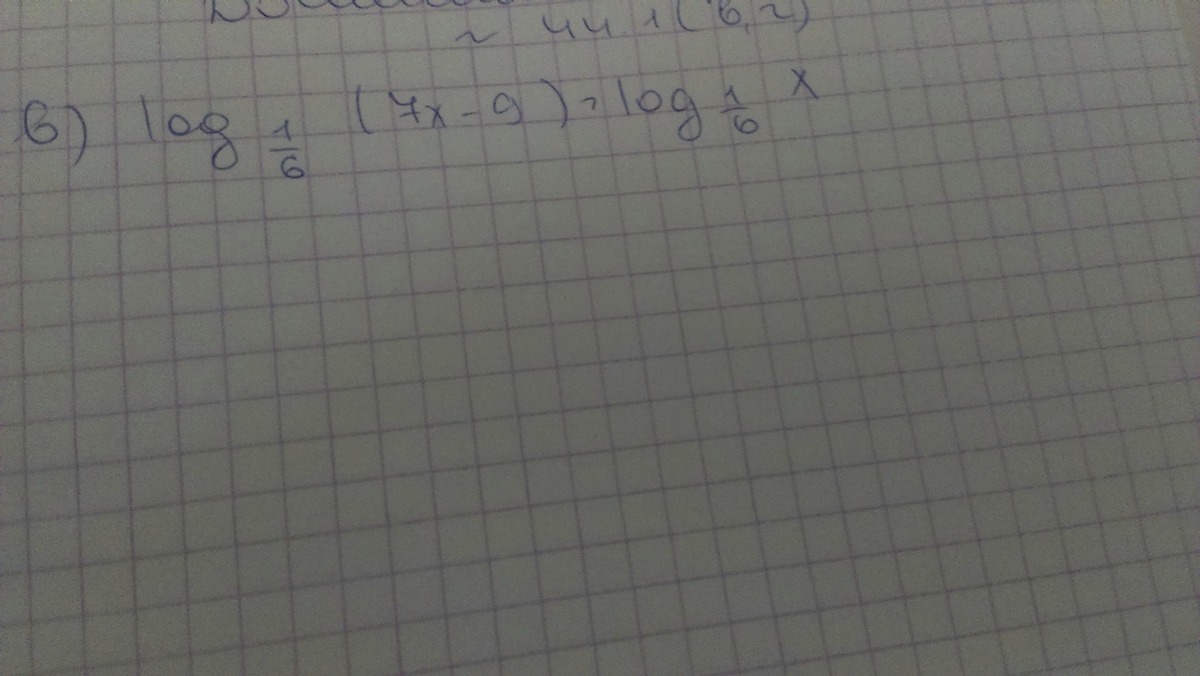 ~ 44.1 (в, г)
в) log 1/6 (7x - 9) = log 1/6 x